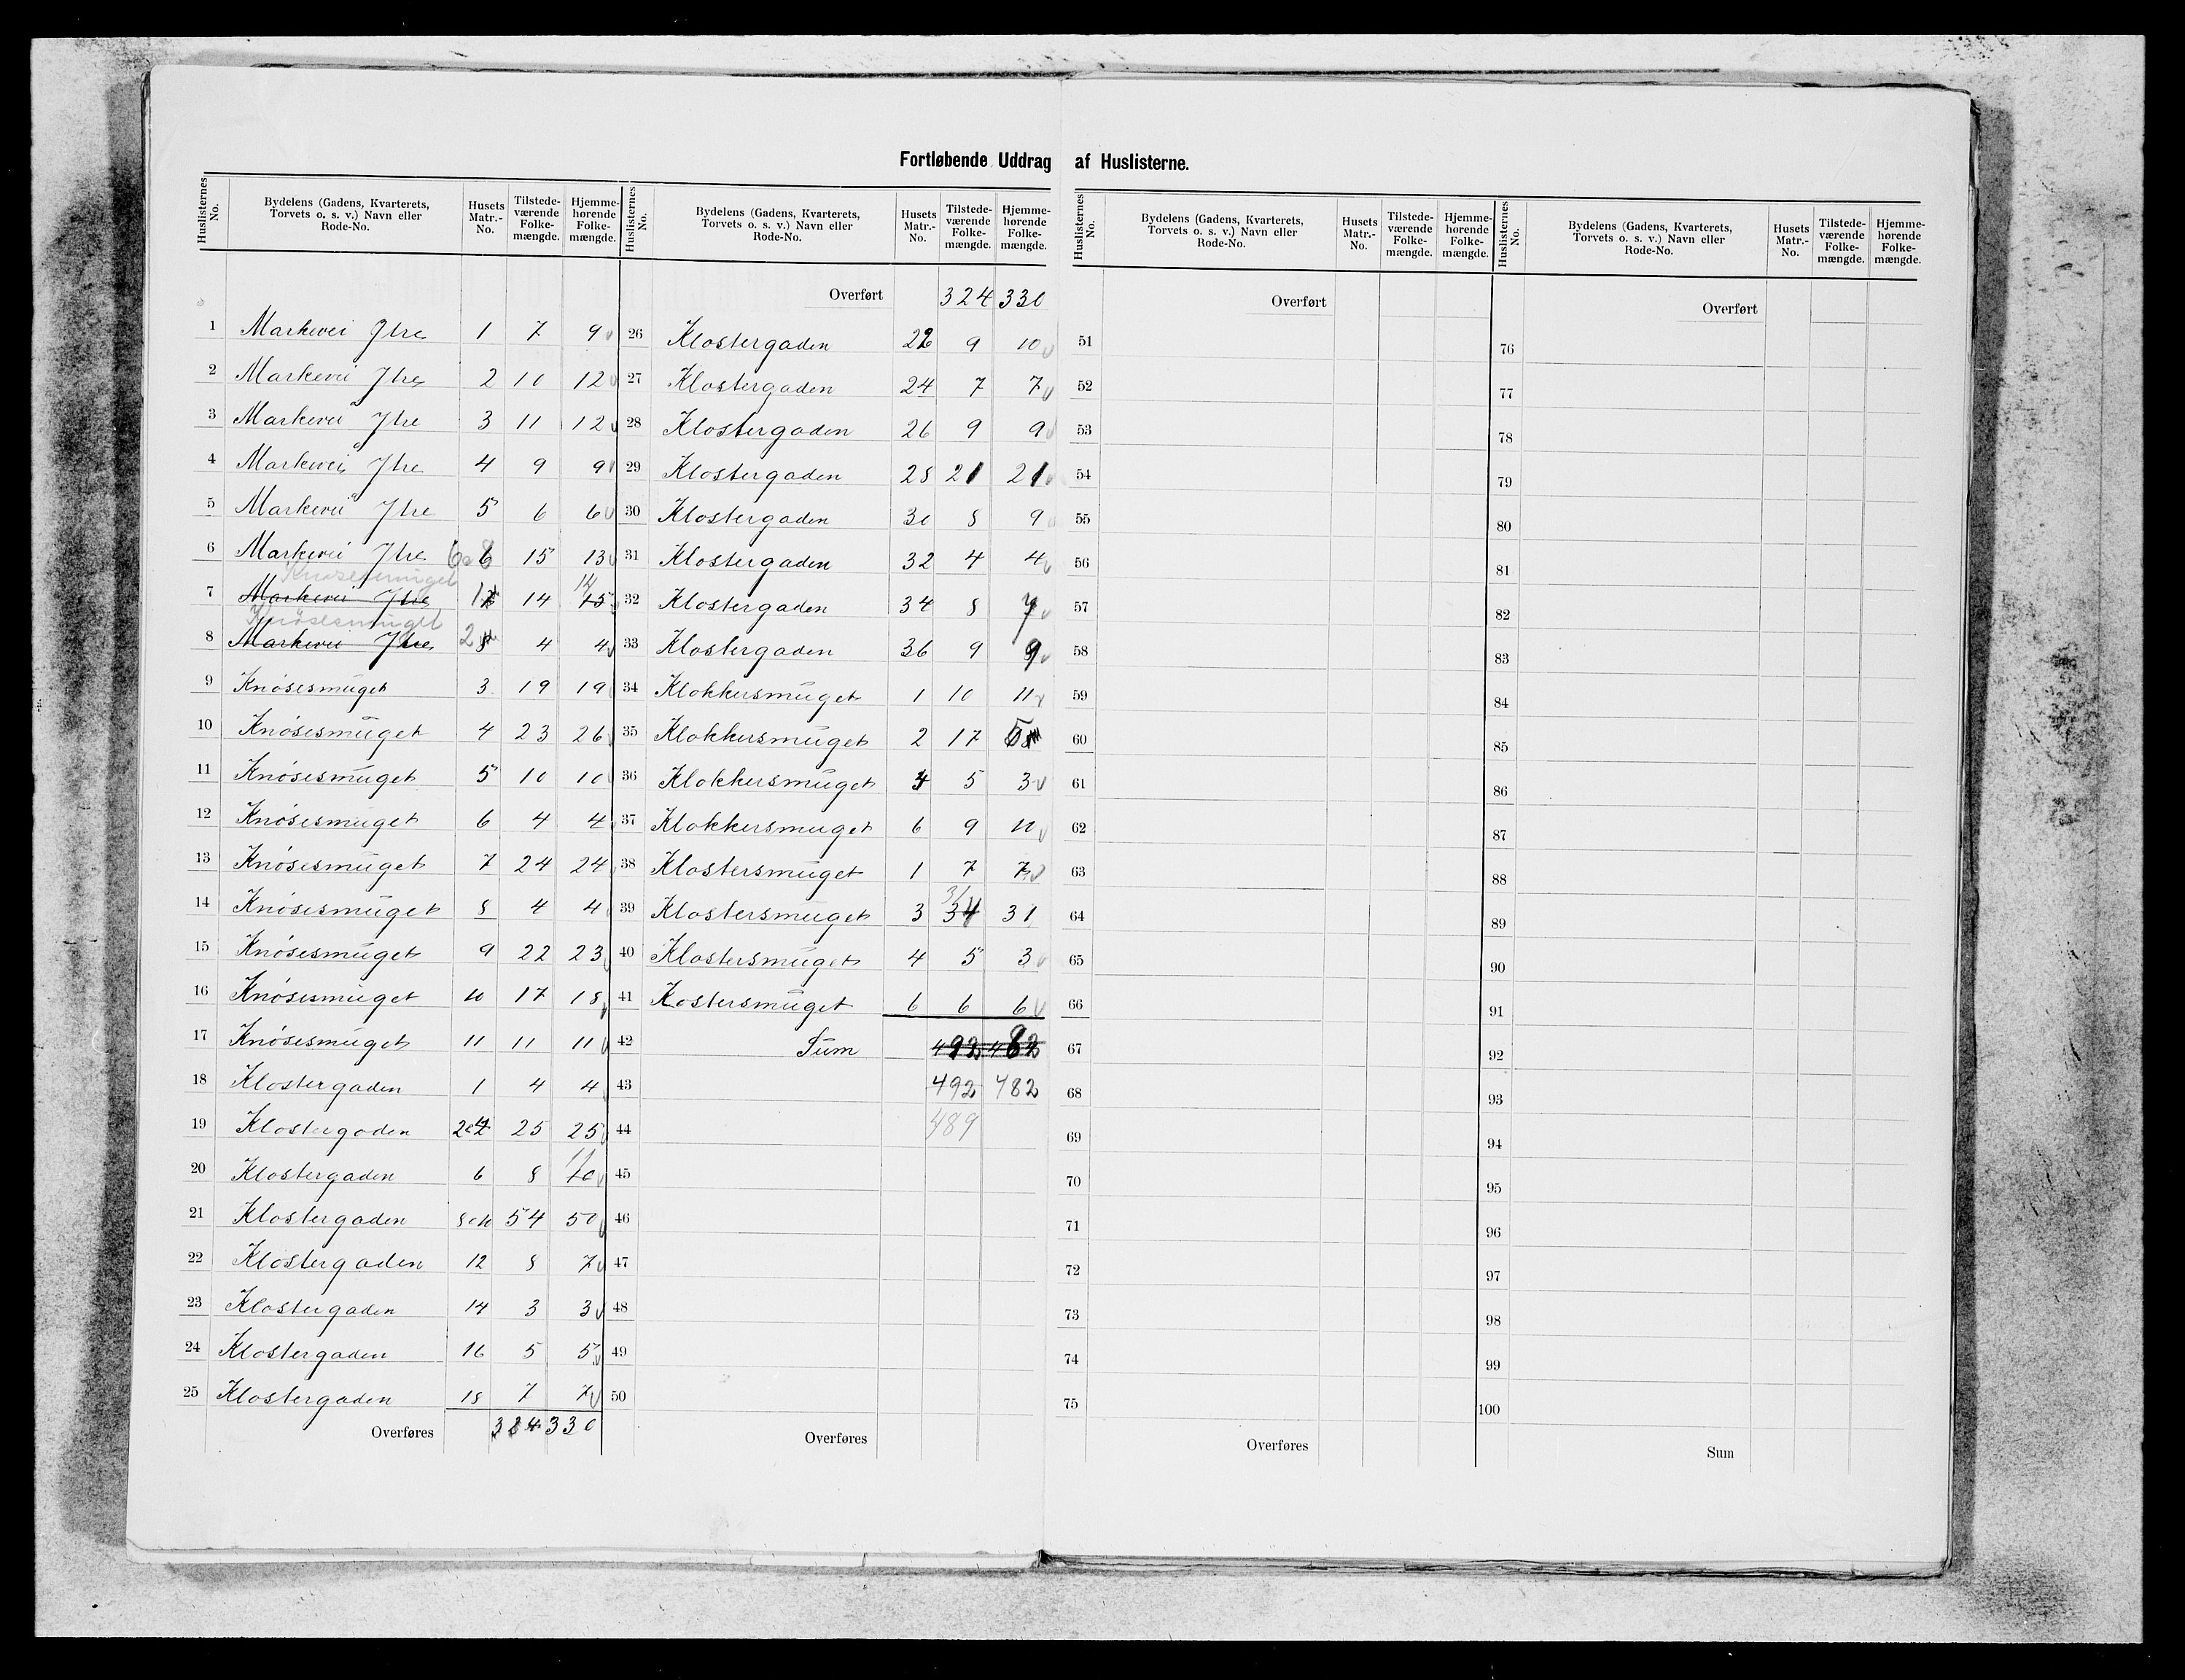 Fortløbende Uddrag af Huslisterne.
Huslisternes No. | Bydelens (Gadens, Kvarterets, Torvets o. s. v.) Navn eller Rode-No. | Husets Matr.-No. | Tilstedeværende Folkemængde. | Hjemmehørende Folkemængde.
1 Markevei Ytre 1 7 9
2 Markevei Ytre 2 10 12
3 Markevei Ytre 3 11 12
4 Markevei Ytre 4 9 9
5 Markevei Ytre 5 6 6
6 Markevei Ytre 6 15 13
Knøsesmuget
7 Markevei Ytre 1 14 15 14
Knøsesmuget
8 Markevei Ytre 2 8 4 4
9 Knøsesmuget 3 19 19
10 Knøsesmuget 4 23 26
11 Knøsesmuget 5 10 10
12 Knøsesmuget 6 4 4
13 Knøsesmuget 7 24 24
14 Knøsesmuget 8 4 4
15 Knøsesmuget 9 22 23
16 Knøsesmuget 10 17 18
17 Knøsesmuget 11 11 11
18 Klostergaden 1 4 4
19 Klostergaden 2 o 4 25 25
20 Klostergaden 6 8 10 11
21 Klostergaden 8 o 10 54 50
22 Klostergaden 12 8 7
23 Klostergaden 14 3 3
24 Klostergaden 16 5 5
25 Klostergaden 18 7 7
Overføres 324 330
Huslisternes No. | Bydelens (Gadens, Kvarterets, Torvets o. s. v.) Navn eller Rode-No. | Husets Matr.-No. | Tilstedeværende Folkemængde. | Hjemmehørende Folkemængde.
Overført 324 330
26 Klostergaden 22 9 10
27 Klostergaden 24 7 7
28 Klostergaden 26 9 9
29 Klostergaden 28 21 21
30 Klostergaden 30 8 9
31 Klostergaden 32 4 4
32 Klostergaden 34 8 7
33 Klostergaden 36 9 9
34 Klokkersmuget 1 10 11
35 Klokkersmuget 2 17
36 Klokkersmuget 4 5 3
37 Klokkersmuget 6 9 10
38 Klostersmuget 1 7 7
39 Klostersmuget 3 34 31 31
40 Klostersmuget 4 5 3
41 Kostersmuget 6 6 6
42 Sum 492 482
43 492 482
44 489
45
46
47
48
49
50
Overføres
Huslisternes No. | Bydelens (Gadens, Kvarterets, Torvets o. s. v.) Navn eller Rode-No. | Husets Matr.-No. | Tilstedeværende Folkemængde. | Hjemmehørende Folkemængde.
Overført
51
52
53
54
55
56
57
58
59
60
61
62
63
64
65
66
67
68
69
70
71
72
73
74
75
Overføres
Huslisternes No. | Bydelens (Gadens, Kvarterets, Torvets o. s. v.) Navn eller Rode-No. | Husets Matr.-No. | Tilstedeværende Folkemængde. | Hjemmehørende Folkemængde.
Overført
76
77
78
79
80
81
82
83
84
85
86
87
88
89
90
91
92
93
94
95
96
97
98
99
100
Sum